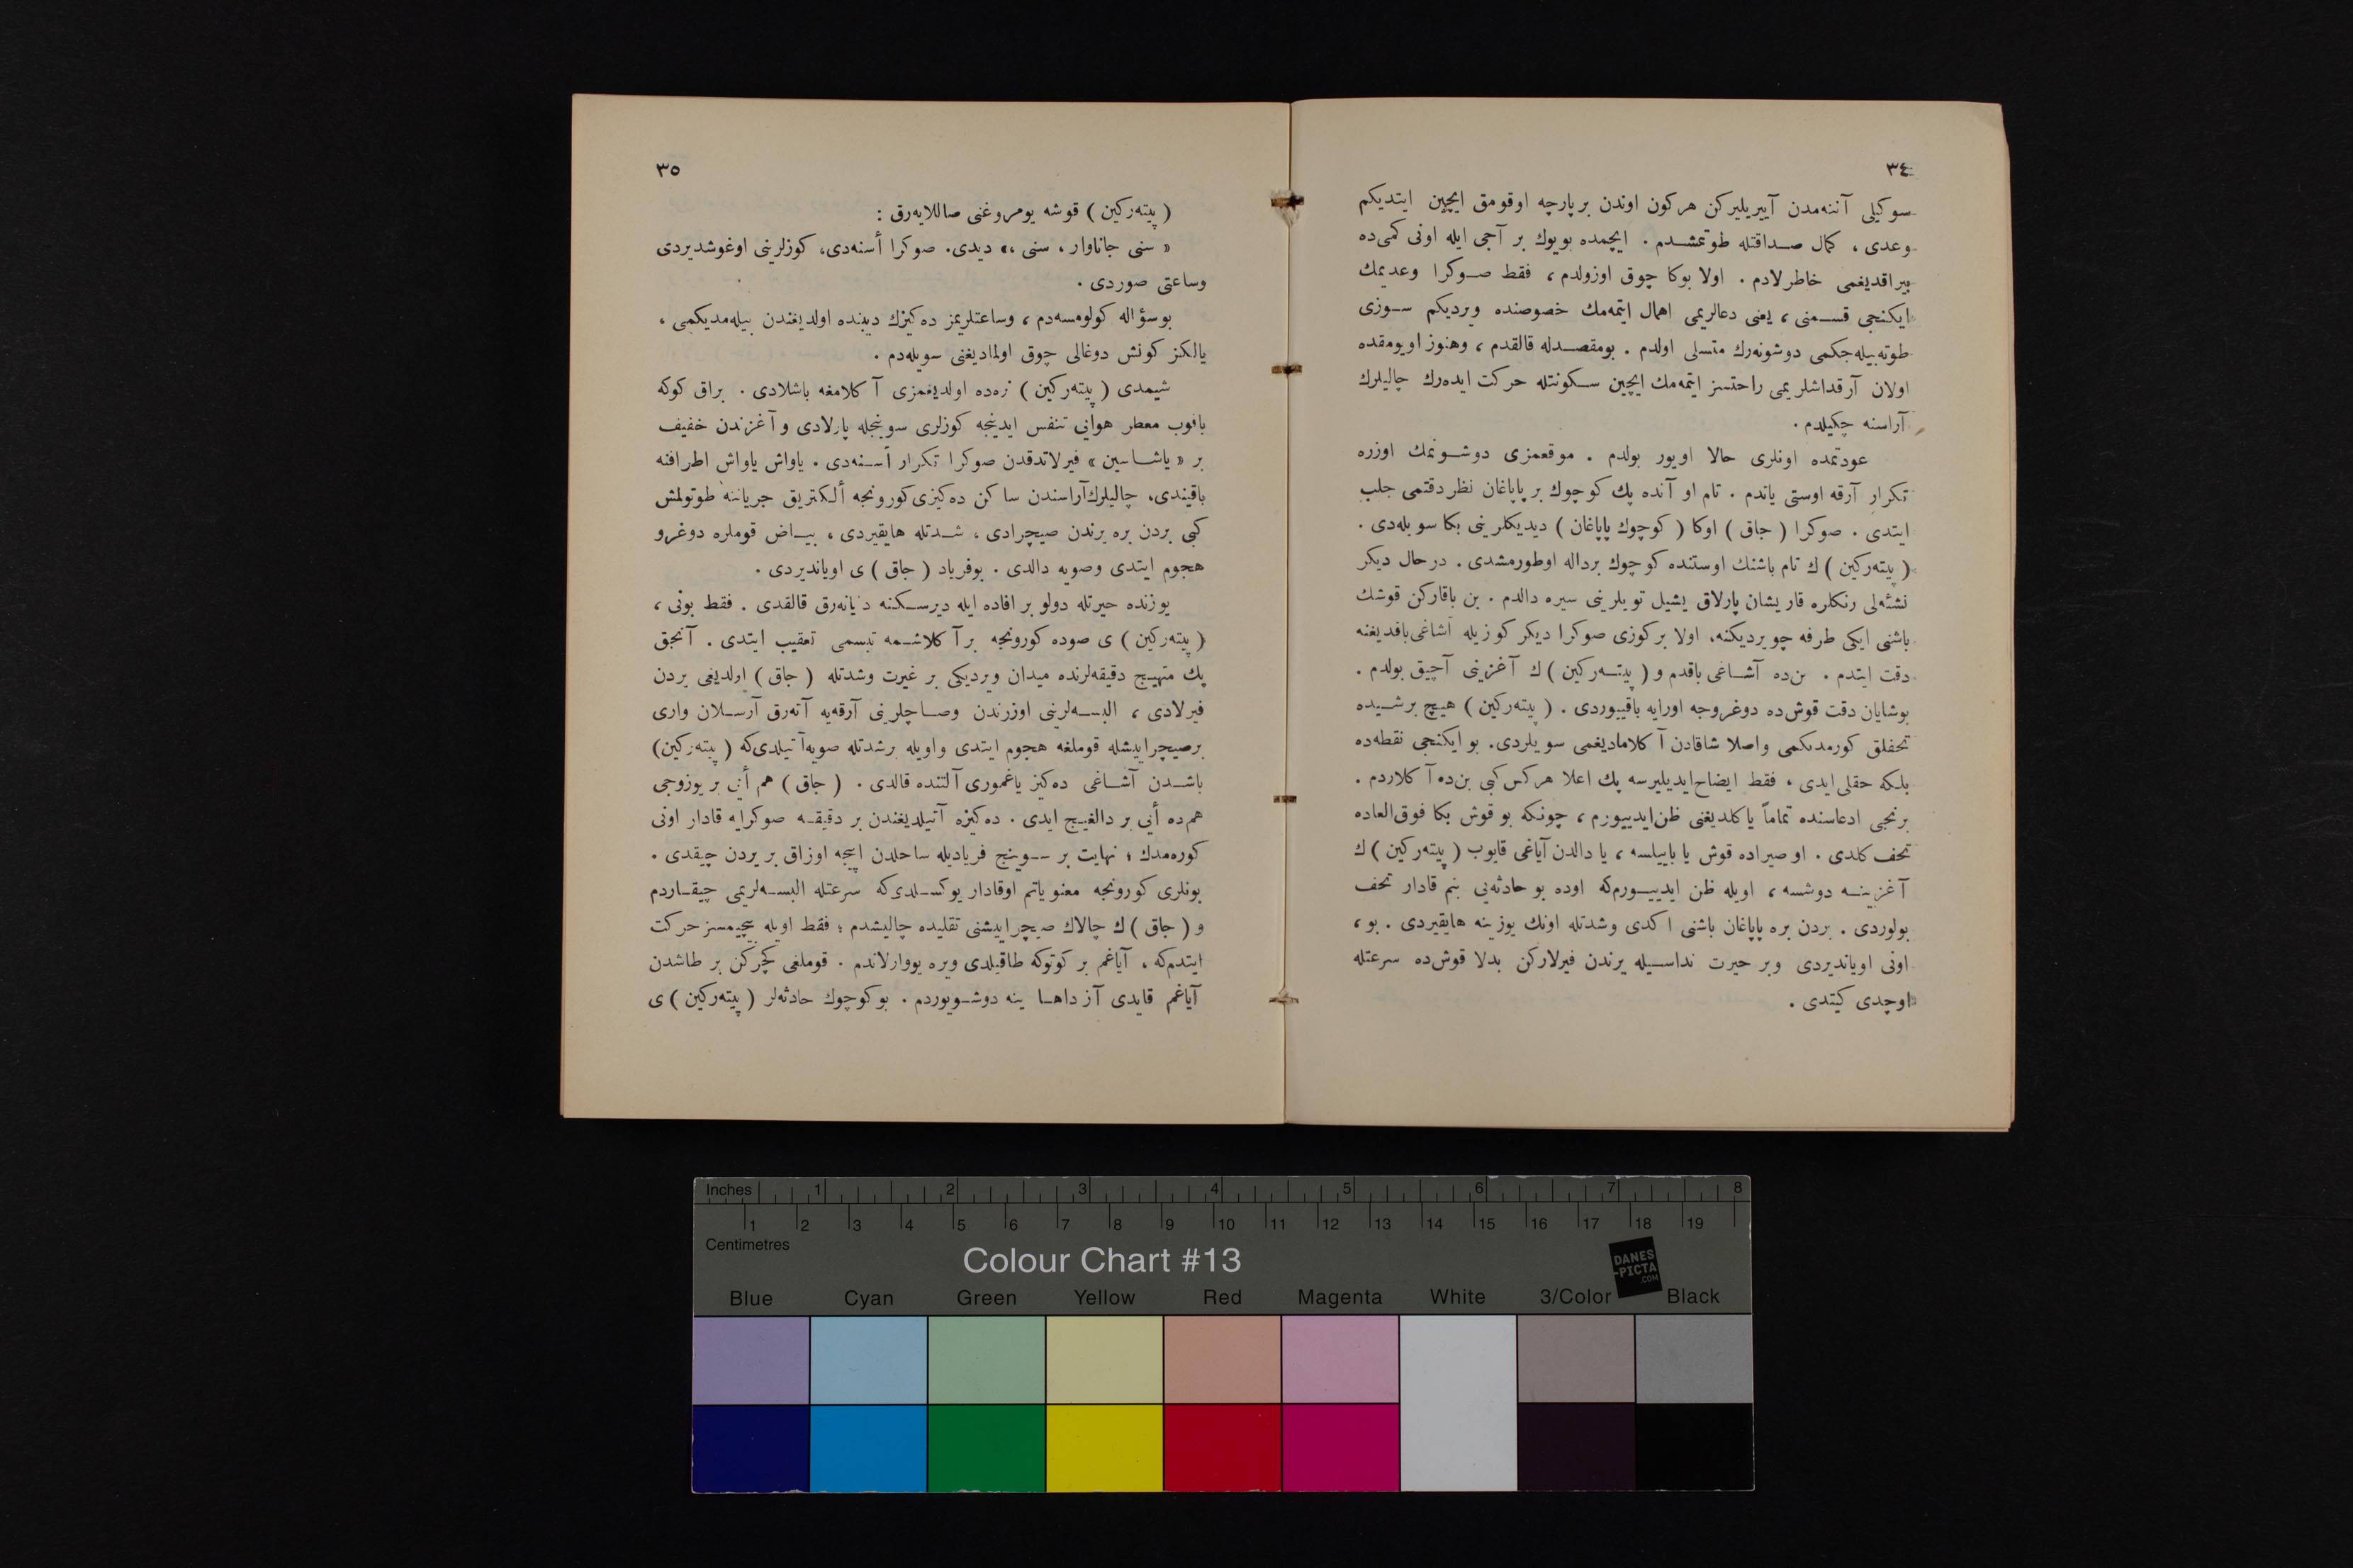 ٣٤
سوكيلى آننه‌مدن آييريليركن هركون اوندن برپارچه اوقومق ايچين ايتديكم
وعدى ، كمال صداقتله طوتمشدم . ايچمده بويوك بر آجى ايله اونى كمى‌ده
بيراقديغمى خاطرلادم . اولا بوكا چوق اوزولدم ، فقط صوكرا وعديمك
ايكنجى قسمنى ، يعنى دعالريمى اهمال ايتمه‌مك خصوصنده ويرديكم سوزى
طوته‌بيله‌جكمى دوشونه‌رك متسلى اولدم . بومقصدله قالقدم ، وهنوز اويومقده
اولان آرقداشلريمى راحتسز ايتمه‌مك ايچين سكونتله حركت ايده‌رك چاليلرك
آراسنه چكيلدم .
عودتمده اونلرى حالا اويور بولدم . موقعمزى دوشونمك اوزره
تكرار آرقه اوستى ياتدم . تام او آنده پك كوچوك بر پاپاغان نظر دقتمى جلب
ايتدى . صوكرا ( جاق ) اوكا ( كوچوك پاپاغان ) ديديكلرينى بكا سويله‌دى .
( پيته‌ركين ) ك تام باشنك اوستنده كوچوك بردالە اوطورمشدى . درحال ديكر
نشئه‌لى رنكلره قاريشان پارلاق يشيل تويلرينى سيره دالدم . بن باقاركن قوشك
باشنى ايكى طرفه چويرديكنه، اولا بركوزى صوكرا ديكر كوزيله آشاغى‌باقديغنه
دقت ايتدم . بن‌ده آشاغى باقدم و ( پيته‌ركين ) ك آغزينى آچيق بولدم .
بوشايان دقت قوش‌ده دوغروجه اورايه باقييوردى . ( پيته‌ركين ) هيچ برشيده
تحفلق كورمديكمى واصلا شاقادن آكلاماديغمى سويلردى. بو ايكنجى نقطه‌ده
بلكه حقلى ايدى ، فقط ايضاح‌ايديليرسه پك اعلا هركس كبى بن‌ده آكلاردم .
برنجى ادعاسنده تماماً ياكلديغنى ظن‌ايدييورم ، چونكه بو قوش بكا فوق‌العاده
تحف كلدى . او صيراده قوش يا باييلسه ، يا دالدن آياغى قايوب ( پيته‌ركين ) ك
آغزينه دوشسه ، اويله ظن ايدييورم‌كه اوده بو حادثه‌يى بنم قادار تحف
بولوردى . بردن بره پاپاغان باشنى اكدى وشدتله اونك يوزينه هايقيردى . بو ،
اونى اوياندیردى وبر حيرت نداسيله يرندن فيرلاركن بدلا قوش‌ده سرعتله
اوچدى كيتدى .
٣٥
( پيته‌ركين ) قوشه يومروغنى صاللايه‌رق :
« سنى جاناوار ، سنى ،» ديدى. صوكرا أسنه‌دى، كوزلرينى اوغوشديردى
وساعتى صوردى .
بوسؤاله كولومسه‌دم ، وساعتلريمز ده‌كيزك ديبنده اولديغندن بيله‌مديكمى ،
يالكز كونش دوغالى چوق اولماديغنى سويله‌دم .
شيمدى ( پيته‌ركين ) نره‌ده اولديغمزى آكلامغه باشلادى . براق كوكه
باقوب معطر هوايى تنفس ايدينجه كوزلرى سوينجله پارلادى و آغزندن خفيف
بر « ياشاسين » فيرلاتدقدن صوكرا تكرار أسنه‌دى . ياواش ياواش اطرافنه
باقيندى، چاليلرك‌آراسندن ساكن ده‌كيزى كورونجه ألكتريق جرياننه طوتولمش
كبى بردن بره يرندن صيچرادى ، شدتله هايقيردى ، بياض قوملره دوغرو
هجوم ايتدى وصويه دالدى . بوفرياد ( جاق ) ى اوياندیردى .
يوزنده حيرتله دولو بر افاده ايله ديرسكنه دايانه‌رق قالقدى . فقط بونى ،
( پيته‌ركين ) ى صوده كورونجه بر آكلاشمه تبسمى تعقيب ايتدى . آنجق
پك متهيج دقيقه‌لرنده ميدان ويرديكى بر غيرت وشدتله ( جاق ) اولديغى يردن
فيرلادى ، البسه‌لرينى اوزرندن وصاچلرينى آرقه‌يه آته‌رق آرسلان وارى
برصيچرايیشله قوملغه هجوم ايتدى واويله برشدتله صويه‌آتيلدى‌كه ( پيته‌ركين)
باشدن آشاغى ده‌كيز ياغمورى آلتنده قالدى . ( جاق ) هم أيى بر يوزوجى
هم‌ده أيى بر دالغيچ ايدى . ده‌كيزه آتيلديغندن بر دقيقه صوكرايه قادار اونى
كوره‌مدك ؛ نهايت بر سوينج فرياديله ساحلدن ايیجه اوزاق بر يردن چيقدى .
بونلرى كورونجه معنوياتم اوقادار يوكسلدى‌كه سرعتله البسه‌لريمى چيقاردم
و ( جاق ) ك چالاك صيچرايیشنى تقليده چاليشدم ؛ فقط اويله بيچيمسز حركت
ايتدم‌كه ، آياغم بر كوتوكه طاقيلدى ويره يووارلاندم . قوملغى كچركن بر طاشدن
آياغم قايدى آز داها ينه دوشويوردم . بو كوچوك حادثه‌لر ( پيته‌ركين ) ى
Inches 1 2 3 4 5 6 7 8
1 2 3 4 5 6 7 8 9 10 11 12 13 14 15 16 17 18 19
Centimetres
Colour Chart #13
DANES
-PICTA
.COM
Blue Cyan Green Yellow Red Magenta White 3/Color Black